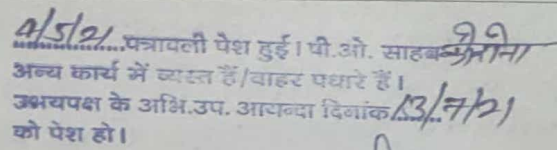 4/5/21 पत्रावली पेश हुई। पी.ओ. साहब
अन्य कार्य में व्यस्त हैं/बाहर पधारे हैं।
उभयपक्ष के अभि.उप. आयन्दा दिनांक 13/7/21
को पेश हो।